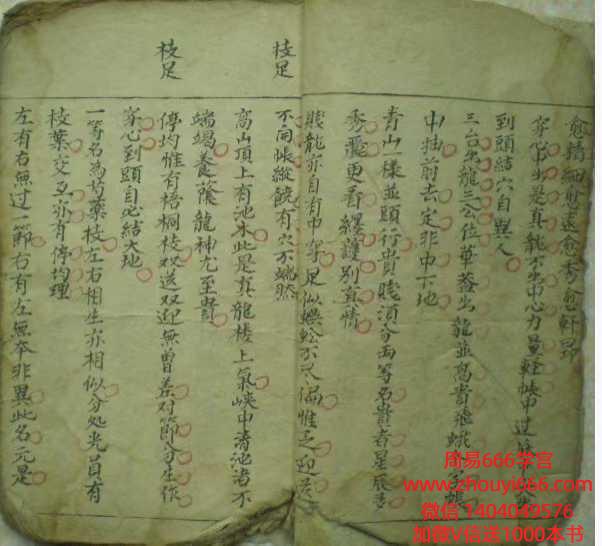 愈精細愈遠愈秀愈軒昂
穿心出是真龍不出中心力量輕帳中過
到頭結穴自異人
三台出龍三公位華蓋出龍並高貴飛蛾
中抽前去定非中下地
青山一樣並頭行貴賤須分兩等名貴者星辰
秀麗更看纏護別真情
賤龍亦自有中穿足似蜈蚣不
不開帳縱饒有穴不端然
枝足
高山頂上有池水此是真龍樓上氣峽中清池渚不
端竭養蔭龍神尤至貴
停均惟有梧桐枝双送双迎無曾差对節分生作
穿心到頭自必結大地
枝足
一等名為芍藥枝左右相生亦相似分处光員有
枝葉交互亦有停均理
左有右無过一節右有左無本非異此名元是
周易666学宫
www.zhouyi666.com
微信 1404049576
加微V信送1000本书